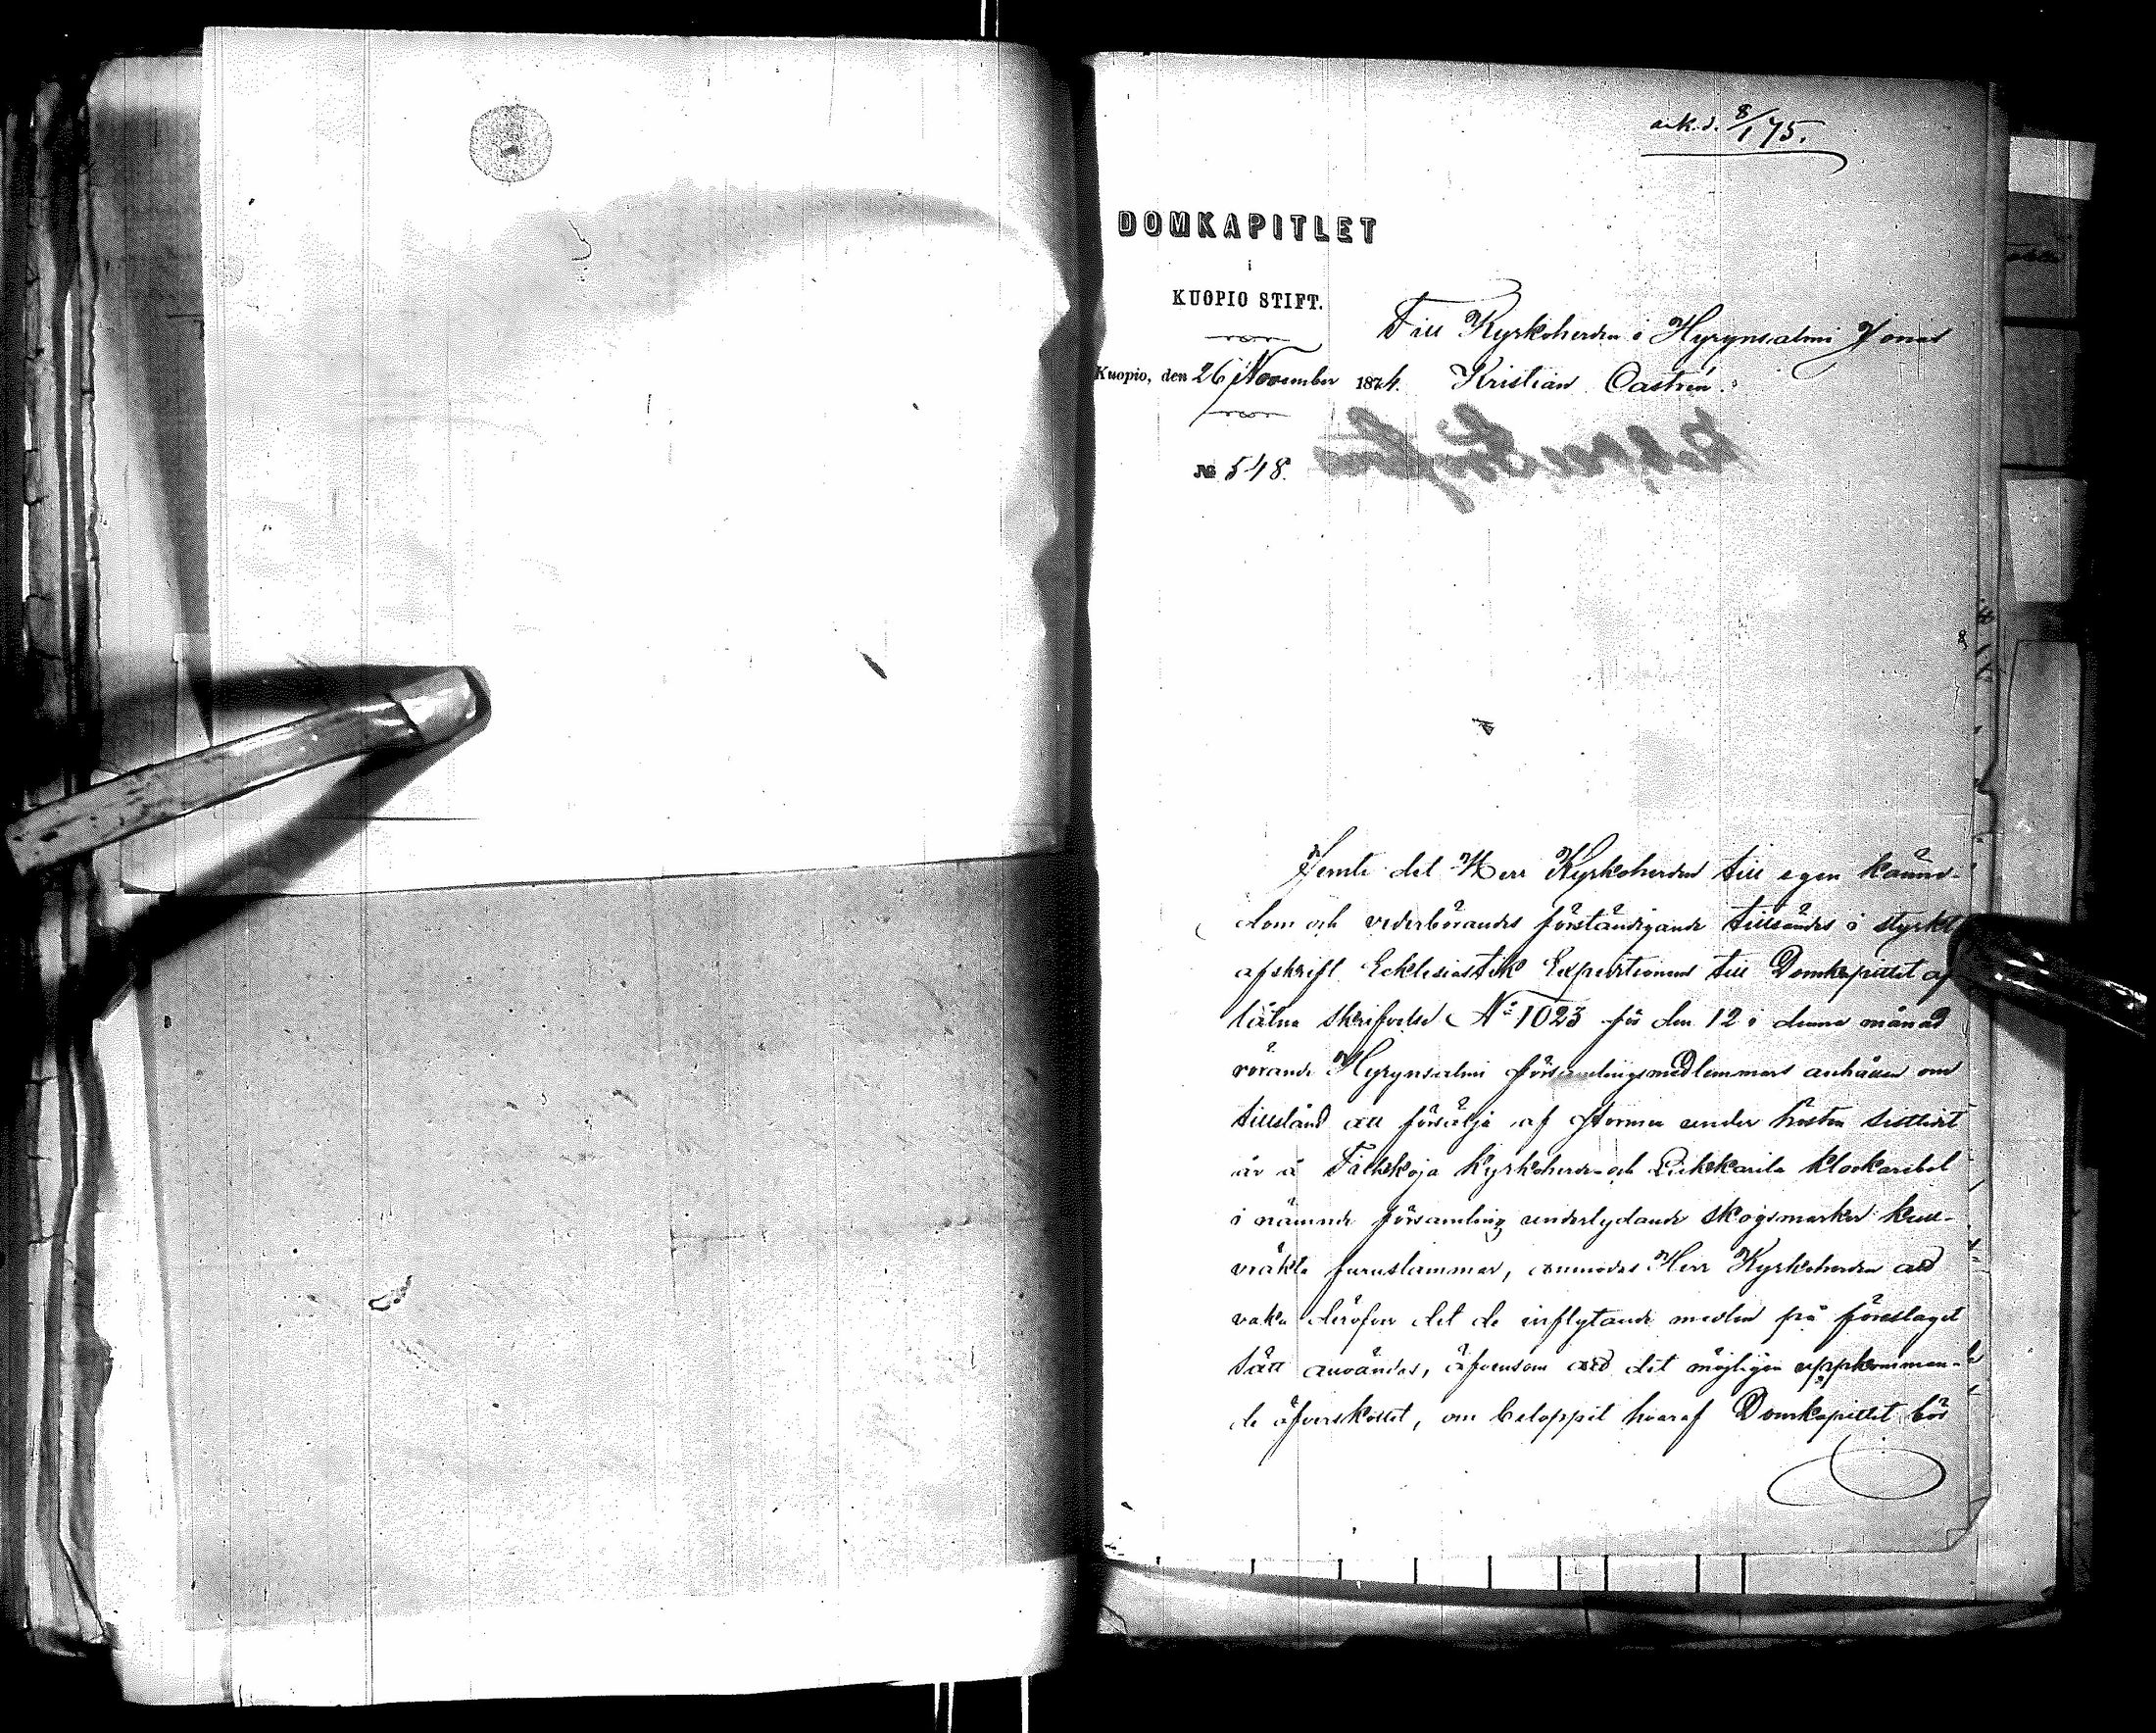 ank. d. 8/1 75.
DOMKAPITLET
i
KUOPIO STIFT.
Till Kyrkoherden i Hyrynsalmi Jonas
Kuopio, den 26 November 1874. Kristian Castrén.
№ 548.
Jemte det Herr Kyrkoherden till egen känne-
dom och vederbörandes förständigande tillsändes i styrkt
afskrift Ecklesiastik Expeditionens till Domkapitlet af
låtna skrifvelse N° 1023 för den 12 i denna månad
rörande Hyrynsalmi församlingsmedlemmars anhållan om
tillstånd att försälja af stormen under hösten sistlidet
år å Kyrkoherde- och klockarebol
i nämnde församling underlydande skogsmarker kull-
vräkta furustammar, anmodas Herr Kyrkoherden att
vaka deröfver det de inflytande medlen på föreslaget
sätt användas, äfvensom att det möjligen uppkomman-
de öfverskottet, om beloppet hvaraf Domkapitlet bör